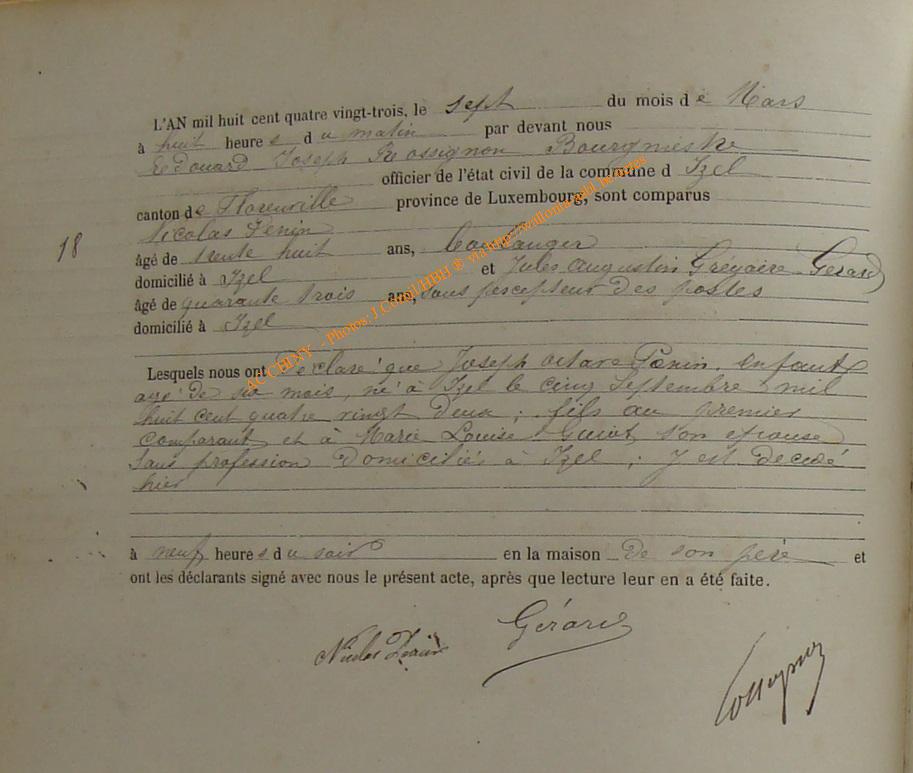 L'AN mil huit cent quatre vingt-trois, le sept du mois de Mars
à huit heures du matin par devant nous
Edouard Joseph Rossignon Bourgmestre
officier de l'état civil de la commune d Izel
canton de Florenville province de Luxembourg, sont comparus
Nicolas
18
âgé de trente huit ans,
domicilié à Izel et Jules Augustin Grégoire Gérard
âgé de quarante trois ans, sous percepteur des postes
domicilié à Izel
Lesquels nous ont déclaré que Joseph Octave enfant
agé de six mois, né à Izel le cinq Septembre mil
huit cent quatre vingt deux ; fils au premier
comparant et à Marie Louise Guiot son épouse
sans profession domiciliés à Izel ; y est décédé
hier
à neuf heures du soir en la maison de son père et
ont les déclarants signé avec nous le présent acte, après que lecture leur en a été faite.
Gérard
ACCHLNY - Photos: J Corsil/HBH ® via http://wallomar.gabl.be/acces